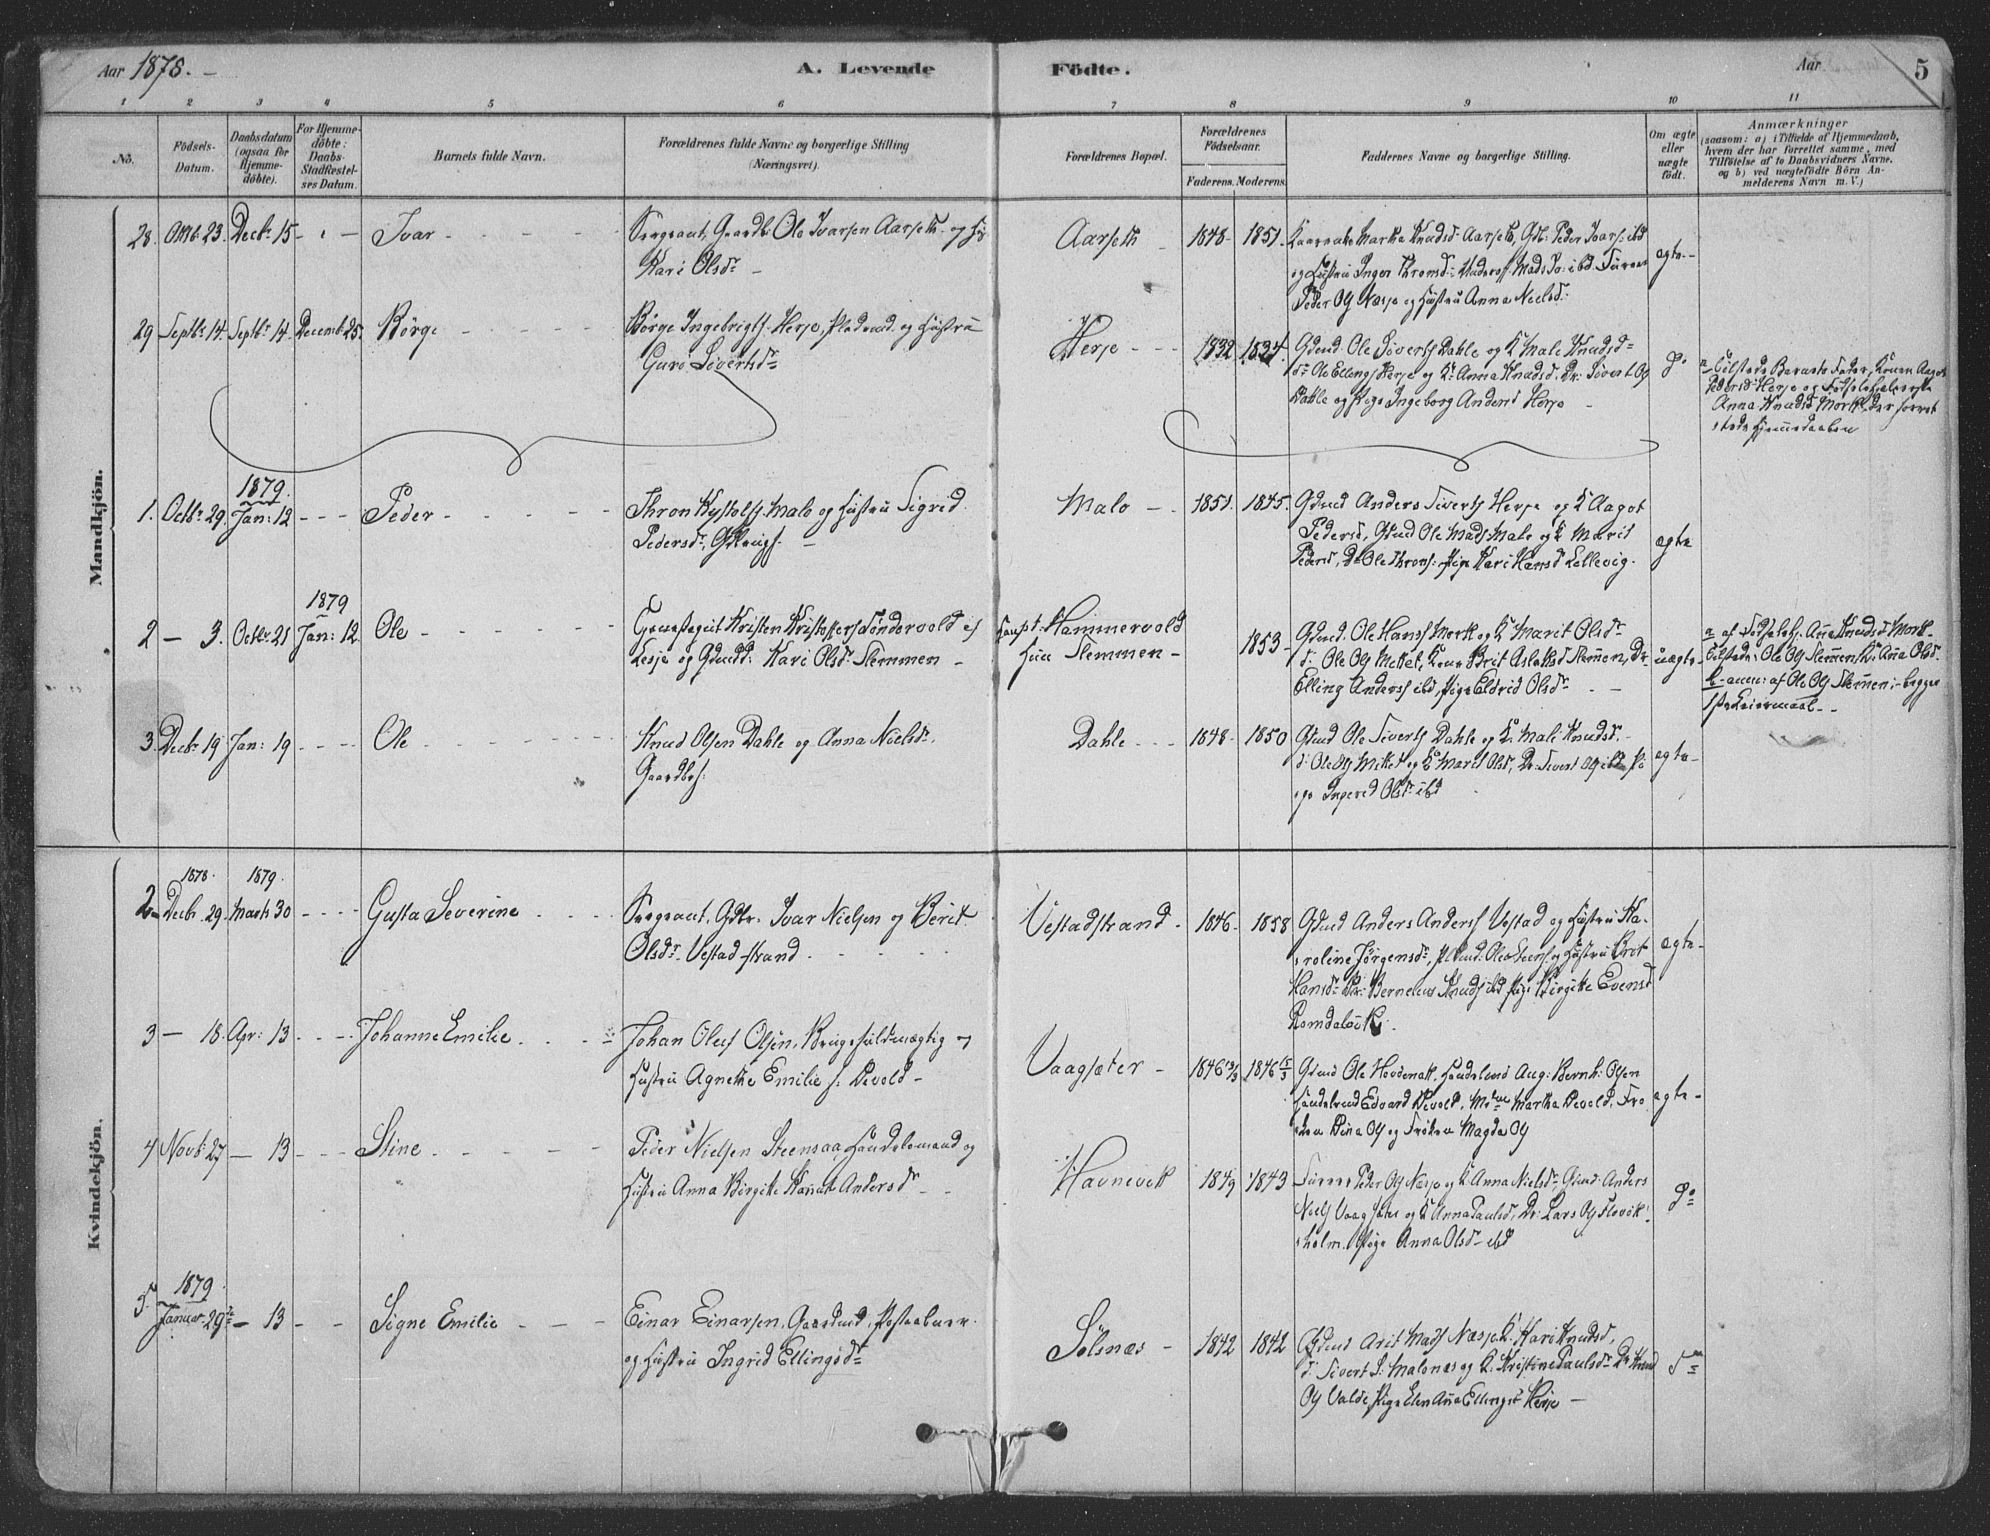 Aar 1878. –
A. Levende
Födte.
Aar
5
1 2 3 4 5 6 7 8 9 10 11
No.
Födsels-
Datum.
Daabsdatum
(ogsaa for
Hjemme-
döbte).
For Hjemme-
döbte:
Daabs-
Stadfæstel-
ses Datum.
Barnets fulde Navn.
Forældrenes fulde Navne og borgerlige Stilling
(Næringsvei).
Forældrenes Bopæl.
Forældrenes
Födselsaar.
Faderens. Moderens.
Faddernes Navne og borgerlige Stilling.
Om ægte
eller
uægte
födt.
Anmærkninger
(saasom: a) i Tilfælde af Hjemmedaab,
hvem der har forrettet samme, med
Tilföielse af to Daabsvidners Navne.
og b) ved uægtefödte Börn An-
melderens Navn m. V.)
Mandkjön.
28. Oktb. 23. Decbr 15 – – Ivar – – – –
Sergeant, Gaardb. Ole Ivarsen Aarseth og H.
Kari Olsdr –
Aarseth – 1848 – 1851.
Marta Knudsd. Aarseth, Gdb. Peder Ivars. ibd
og Hustru Inger Thronsd. Mads Jo. ibd
Peder Ols Næsje og Hustru Anna Nielsd.
ægte –
29 Septbr 14. Septbr 14. Decemb. 25. Börge – – – –
Börge Ingebrigts. Herje, Pladsmd. og Hustru
Guro Sivertsdr
Herje – – – 1832 1834.
Gdmd. Ole Siverts Dahle og K. Mali Knudsd –
Ole Ellings Herje og K. Anna Knudsd, Dr. Sivert Ols
Dahle og Pige Ingeborg Andersd Herje –
do
a Tilstede Barnets Fader, Konen Aagot
Pedersd Herje og Födselshjælperske
Anna Knudsd Mork, der forret-
tede Hjemmedaaben
1879.
1. Octbr 29. Jan: 12 – – – Peder – – – –
Thron Kystols. Malo og Hustru Sigrid
Pedersdr, –
Malo – – 1851. 1845.
Gdmd Anders Siverts Herje og K Aagot
Pedersd, Gdmd Ole Mads Malo og K Marit
Pedersd, Dr Ole Throns. Pige Kari Hansd Lellevig.
ægte
1879
2 – 3. Octbr 21 Jan: 12 Ole – – – –
Kristen Kristoffers Söndervold af
Lesje og Kari Olsdr Slemmen –
Hammervold
Hun Slemmen – 1853 –
Gdmd. Ole Hans Mork og K Marit Olsdr
do Ole Ols Mittet, Kone Brit Aslaksd Slemmen, Dr.
Elling Anders ibd, Pige Eldrid Olsdr –
uægte –
a af Födselshj. Anna Knudsd Mork –
Tilstede: Ole Ols Slemmen, K. Anna Olsd.
b – anm: af Ole Ols Slemmen; begges
1ste Leiermaal. –
3. Decbr 19 Jan: 19 – – – – Ole – – – –
Knud Olsen Dahle og Anna Nielsdr.
Gaardbrs.
Dahle – – – 1848 – 1850
Gdmd Ole Siverts Dahle og K. Mali Knudsd.
do Ole Ols Mittet og K Marit Olsd, Dr: Sivert Ols ibd Pi-
ge Ingered Olsdr ibd
ægte –
Kvindekjön.
1878. 1879.
2 – Decbr. 29. Marts 30 – – – – Gusta Severine – – – –
Sergeant, Gdbr. Ivar Nielsen og Berit
Olsdr. Vestadstrand – – – –
Vestadstrand – 1846 – 1858
Gdmd Anders Anders Vestad og Hustru Ka-
roline Jörgensdr, Plmd: Ole og Hustru Brit
Hansdr Dr: Berneleus Knuds ibd Pige Birgitte Evensd
Romdalsvik.
ægte –
3 – 18. Apr: 13 – – – – Johanne Emilie – – –
Johan Oluf Olsen, Brugsfuldmægtig og
Hustru Agnethe Emilie f. Devold –
Vaagsæter – 1846 13/3 1846 15/3
Gdmd Ole Hovdenak, Handelsmd Aug: Bernh: Olsen
Handelsmd Edvard Devold, Mdme Martha Devold, Frö-
ken Dina Ols og Fröken Magda Ols
ægte –
4 Novbr 27 – 13 – – – Stine – – – –
Peder Nielsen Steensaa, Handelsmand og
Hustru Anna Birgitte Andersdr –
Havnevik 1849 1843
Peder Ols Næsje og K Anna Nielsdr Gdmd Anders
Niels Vaagsæter og K Anna Paulsd, Dr: Lars Ols Flovik-
holm. Pige Anna Olsdr ibd
do
1879.
5. Januar 29de – 13 – – Signe Emilie – – –
Einar Einarsen, Gaardmd, Postaabner
og Hustru Ingrid Ellingsdr
Sölsnæs – 1842 1842
Gdmd Arit Mads Næsje K. Kari Knudsd,
do Sivert S. Malonæs og K. Kristine Paulsdr Dr Knud
Ols Valde Pige Elen Anna Ellingsd Herje –